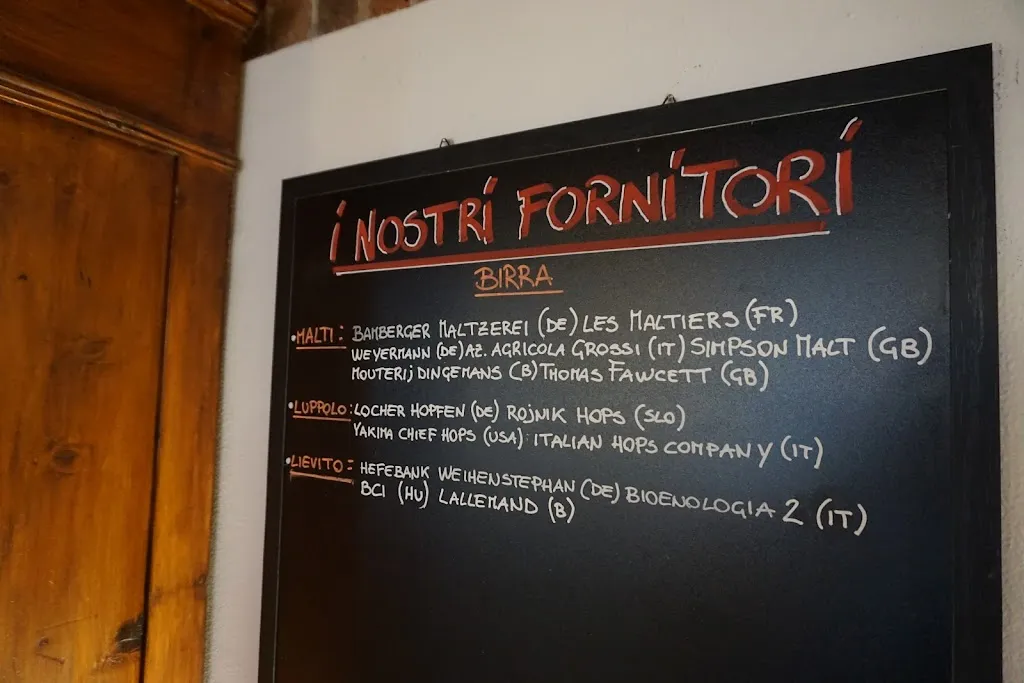 i NOSTRi FORNiTORi
BIRRA
•MALTI: BAMBERGER MALTZEREI (DE) LES MALTIERS (FR)
WEYERMANN (DE) AZ. AGRICOLA GROSSI (IT) SIMPSON MALT (GB)
MOUTERIJ DINGEMANS (B) THOMAS FAWCETT (GB)
•LUPPOLO: LOCHER HOPFEN (DE) ROJNIK HOPS (SLO)
YAKIMA CHIEF HOPS (USA) ITALIAN HOPS COMPANY (IT)
•LIEVITO: HEFEBANK WEIHENSTEPHAN (DE) BIOENOLOGIA 2 (IT)
BCI (HU) LALLEMAND (B)